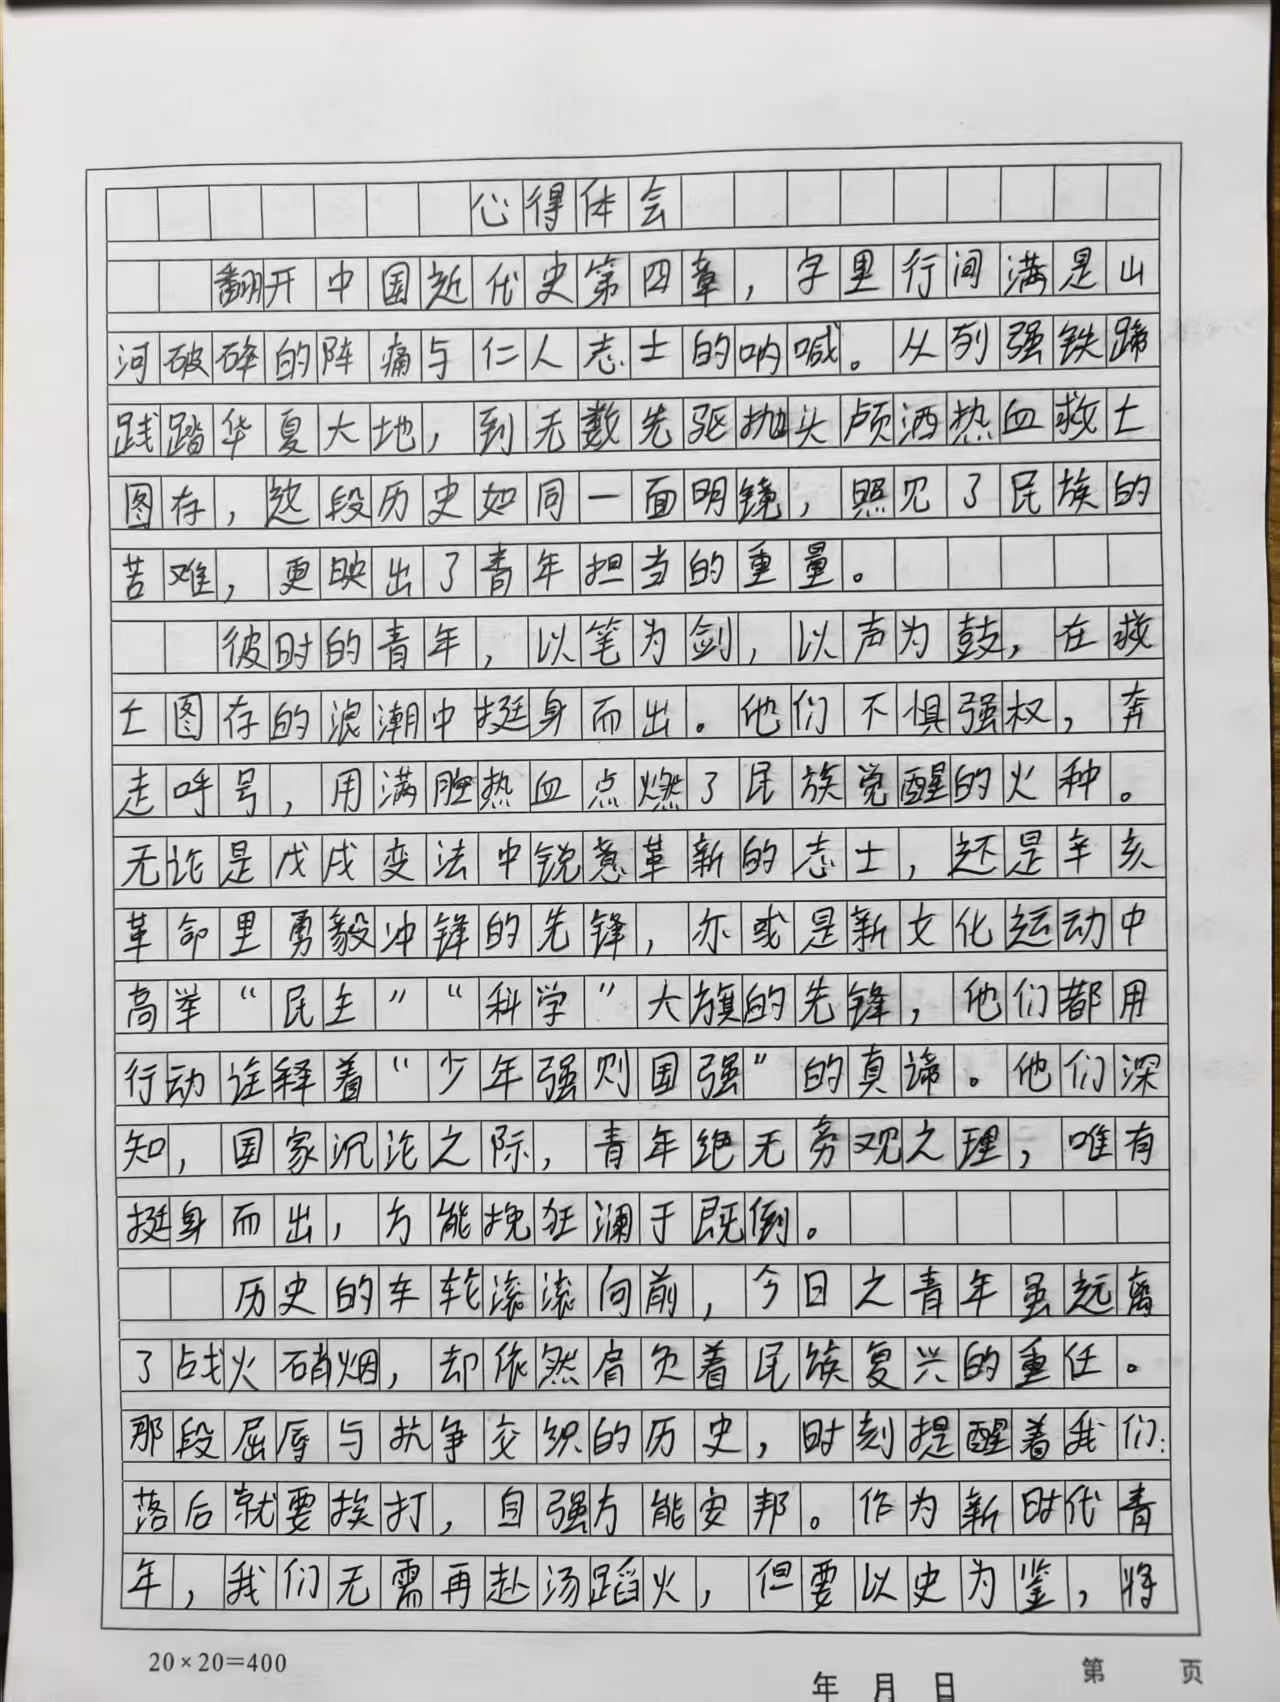 心得体会
翻开中国近代史第四章，字里行间满是山
河破碎的阵痛与仁人志士的呐喊。从列强铁蹄
践踏华夏大地，到无数先驱抛头颅洒热血救亡
图存，这段历史如同一面明镜，照见了民族的
苦难，更映出了青年担当的重量。
彼时的青年，以笔为剑，以声为鼓，在救
亡图存的浪潮中挺身而出。他们不惧强权，奔
走呼号，用满腔热血点燃了民族觉醒的火种。
无论是戊戌变法中锐意革新的志士，还是辛亥
革命里勇毅冲锋的先锋，亦或是新文化运动中
高举“民主”“科学”大旗的先锋，他们都用
行动诠释着“少年强则国强”的真谛。他们深
知，国家沉沦之际，青年绝无旁观之理，唯有
挺身而出，方能挽狂澜于既倒。
历史的车轮滚滚向前，今日之青年虽远离
了战火硝烟，却依然肩负着民族复兴的重任。
那段屈辱与抗争交织的历史，时刻提醒着我们：
落后就要挨打，自强方能安邦。作为新时代青
年，我们无需再赴汤蹈火，但要以史为鉴，将
20×20=400
年 月 日
第 页